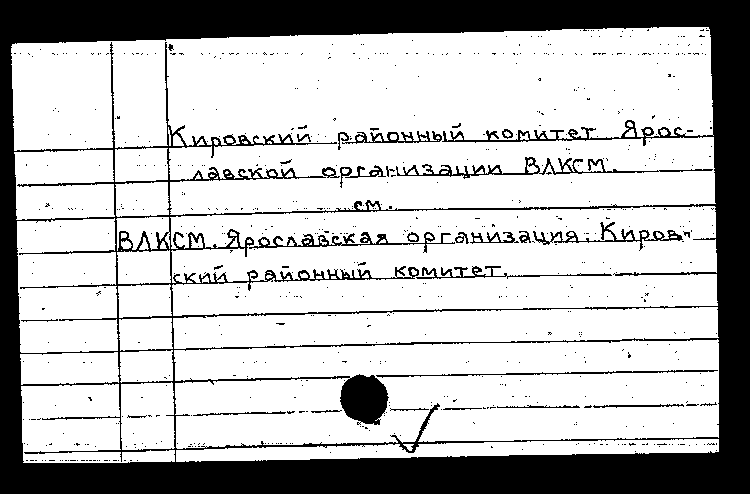 Кировский районный комитет Ярос-
лавской организации ВЛКСМ.
см.
ВЛКСМ. Ярославская организация. Киров-
ский районный комитет.